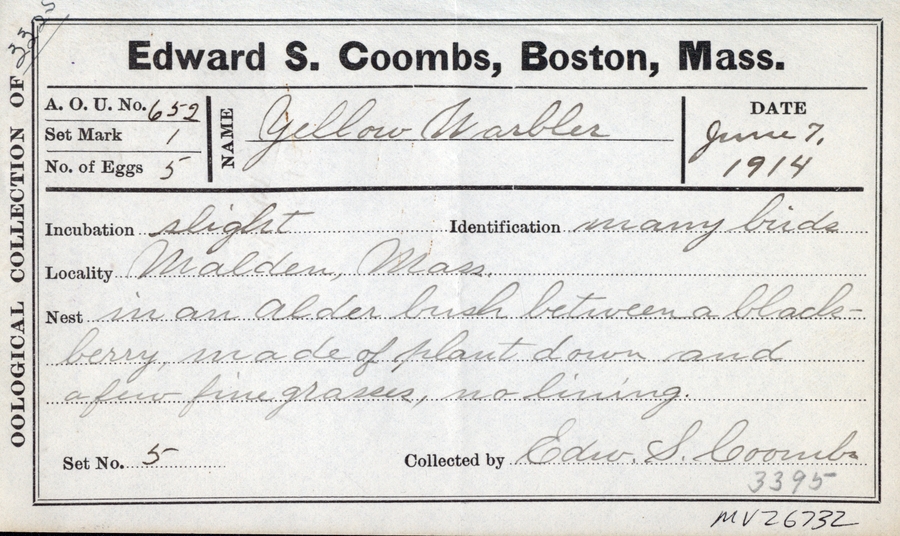 3395
OOLOGICAL COLLECTION OF
Edward S. Coombs, Boston, Mass.
A. O. U. No. 652
Set Mark 1
No. of Eggs 5
NAME Yellow Warbler
DATE
June 7,
1914
Incubation slight Identification many birds
Locality Malden, Mass.
Nest in an alder bush between a black-
berry, made of plant down and
a few fine grasses, no lining.
Set No. 5 Collected by Edw. S. Coombs
3395
MV26732